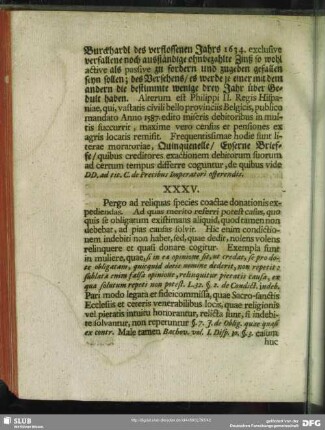 Burckhardi des verflossenen Jahrs 1634. exclusive
verfallene noch ausständige ohnbezahlte Zinß so wohl
active als passive zu fordern und zugeben gefallen
seyn sollen; des Versehens/ es werde je einer mit dem
andern die bestimmte wenige drey Jahr über Ge-
dult haben. Alterum est Philippi II. Regis Hispa-
niæ, qui, vastatis civili bello provinciis Belgicis, publico
mandato Anno 1587. edito miseris debitoribus in mul-
tis succurrit, maxime vero census et pensiones ex
agris locatis remisit. Frequentissimæ hodie sunt lit-
teræ moratoriæ, Quinquenelle/ Eyserne Brief-
fe/ quibus creditores exactionem debitorum suorum
ad certum tempus differre coguntur, de quibus vide
DD. ad tit. C. de Precibus Imperatori offerendis.
XXXV.
Pergo ad reliquas species coactæ donationis ex-
pediendas. Ad quas merito referri potest casus, quo
quis se obligatum existimans aliquid, quod tamen non
debebat, ad pias causas solvit. Hic enim condictio-
nem indebiti non habet, sed, quæ dedit, nolens volens
relinquere et quasi donare cogitur. Exempla sunt
in muliere, quæ, si in ea opinione sit, ut credat, se pro do-
te obligatam, quicquid dotis nomine dederit, non repetit:
sublata enim falsa opinione, relinquitur pietatis causa, ex
qua solutum repeti non potest. L. 32. §. 2. de Condict. indeb.
Pari modo legata et fideicommissa, quæ Sacro-sanctis
Ecclesiis et ceteris venerabilibus locis, quæ religionis
vel pietatis intuitu honorantur, relicta sunt, si indebi-
te solvantur, non repetuntur §. 7. J. de Oblig. quæ quasi
ex contr. Male tamen Bachov. vol. I. Disp. 30. §. 3. casum
huc
SLUB
DFG